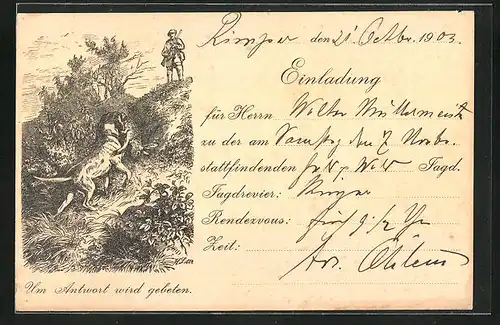 Rimpar den 21 Octbr. 1903.
Einladung
für Herrn Walter Müllermeister
zu der am Samstag den 7 Novbr.
stattfindenden Jagd.
Jagdrevier: Rimpar
Rendezvous: früh 9 1/2 Uhr
Zeit:
Um Antwort wird gebeten.